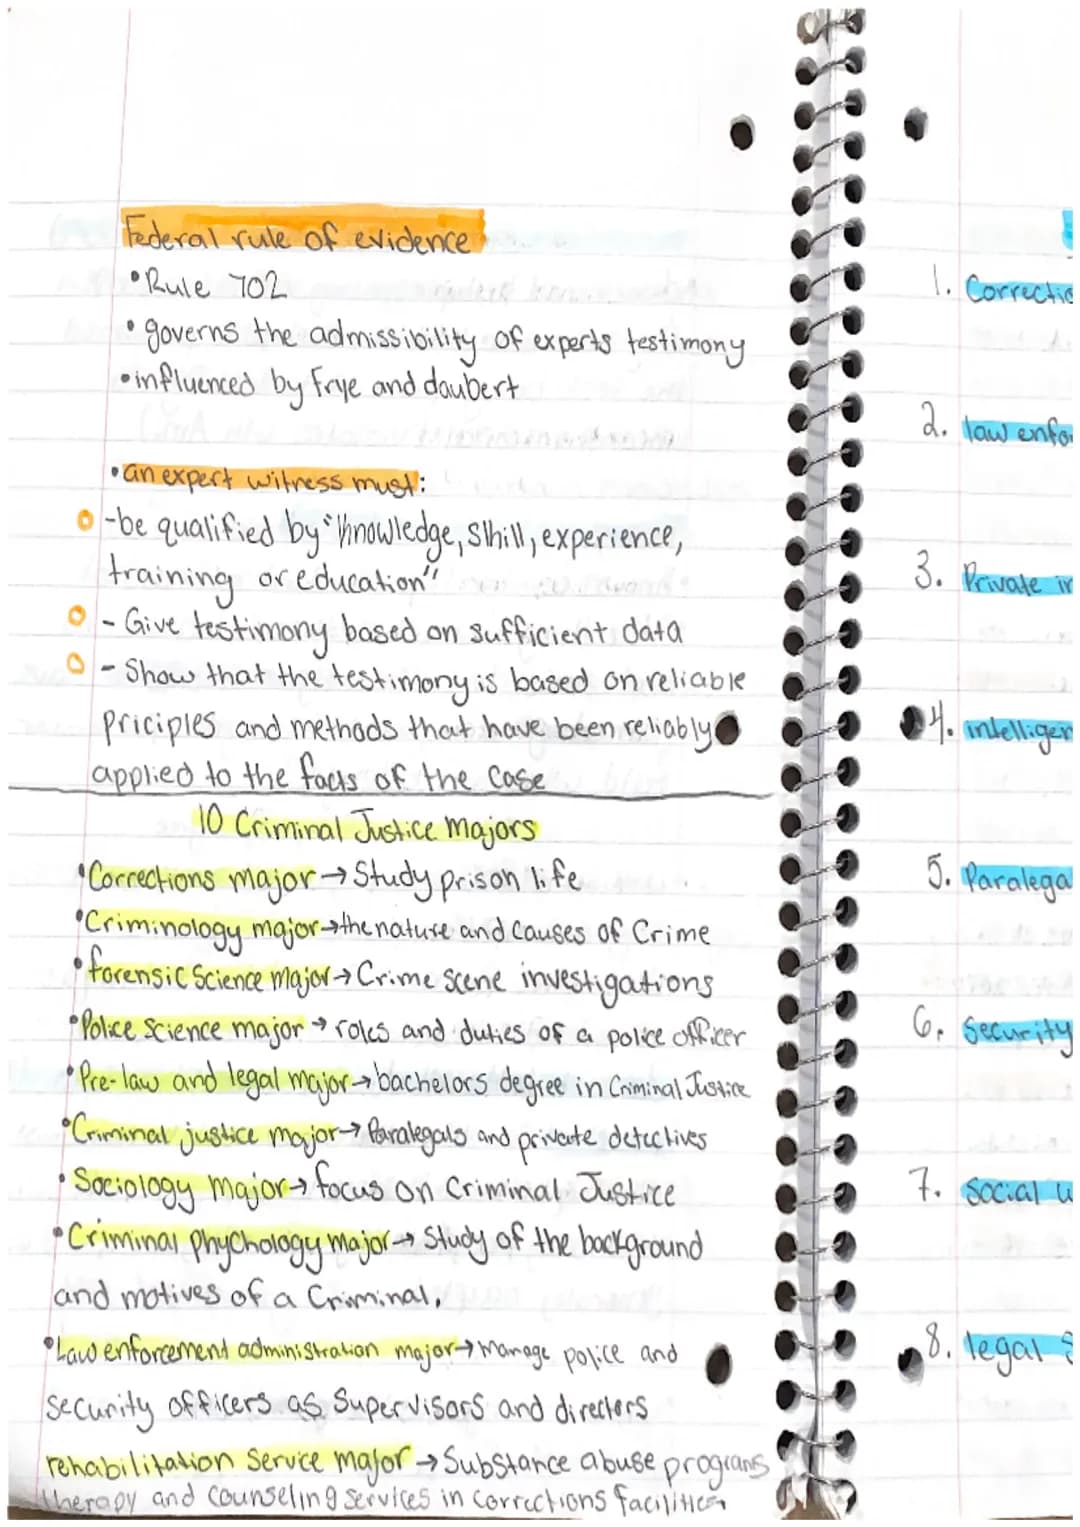 Federal rule of evidence
• Rule 702
• governs the admissibility of experts testimony
• influenced by Frye and daubert
• an expert witness must:
- be qualified by "knowledge, Skill, experience,
training or education"
- Give testimony based on sufficient data
- Show that the testimony is based on reliable
priciples and methods that have been reliably
applied to the facts of the case
10 Criminal Justice Majors
• Corrections major → Study prison life
• Criminology major → the nature and causes of Crime
• forensic Science Major → Crime scene investigations
• Police Science major → roles and duties of a police officer
• Pre-law and legal major → bachelors degree in Criminal Justice
• Criminal justice major → Paralegals and private detectives
• Sociology major → focus on Criminal Justice
• Criminal phychology major → Study of the background
and motives of a Criminal.
• Law enforcement administration major → Manage police and
security officers as Supervisors and directors
rehabilitation Service major → Substance abuse programs
therapy and counseling services in corrections facilities
1. Correctio
2. law enfo
3. Private in
4. intelligen
5. Paralega
6. Security
7. Social w
8. legal S